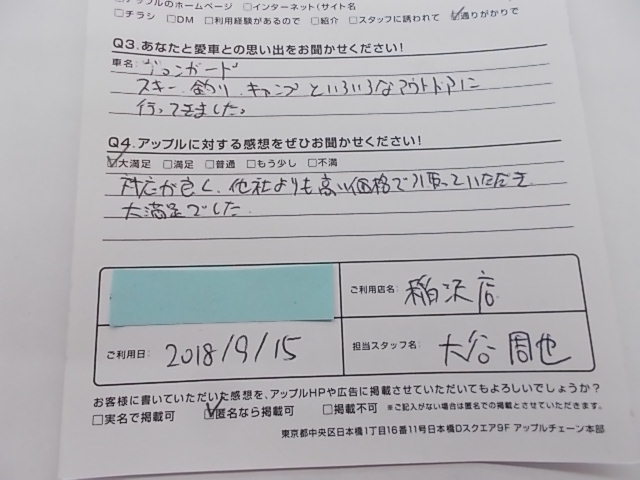 アップルのホームページ □インターネット(サイト名
□チラシ □DM □利用経験があるので □紹介 □スタッフに誘われて ☑通りがかりで
Q3.あなたと愛車との思い出をお聞かせください!
車名:
スキー、釣り、キャンプといろいろなアウトドアに
行ってきました。
Q4.アップルに対する感想をぜひお聞かせください!
☑大満足 □満足 □普通 □もう少し □不満
対応が良く、他社よりも高い価格で引取っていただき
大満足でした
ご利用店名: 稲沢店
ご利用日: 2018/9/15
担当スタッフ名: 大谷 周也
お客様に書いていただいた感想を、アップルHPや広告に掲載させていただいてもよろしいでしょうか?
□実名で掲載可 ☑匿名なら掲載可 □掲載不可 ※ご記入がない場合は匿名での掲載とさせていただきます。
東京都中央区日本橋1丁目16番11号日本橋Dスクエア9F アップルチェーン本部